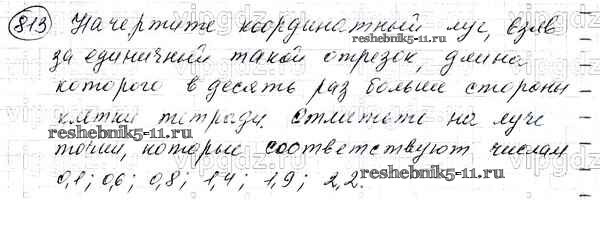 813 Начертите координатный луч, взяв
reshebnik5-11.ru
за единичный такой отрезок, длина
которого в десять раз больше стороны
клетки тетради. Отметьте на луче
reshebnik5-11.ru
точки, которые соответствуют числам
0,1; 0,6; 0,8; 1,4; 1,9; 2,2.
reshebnik5-11.ru